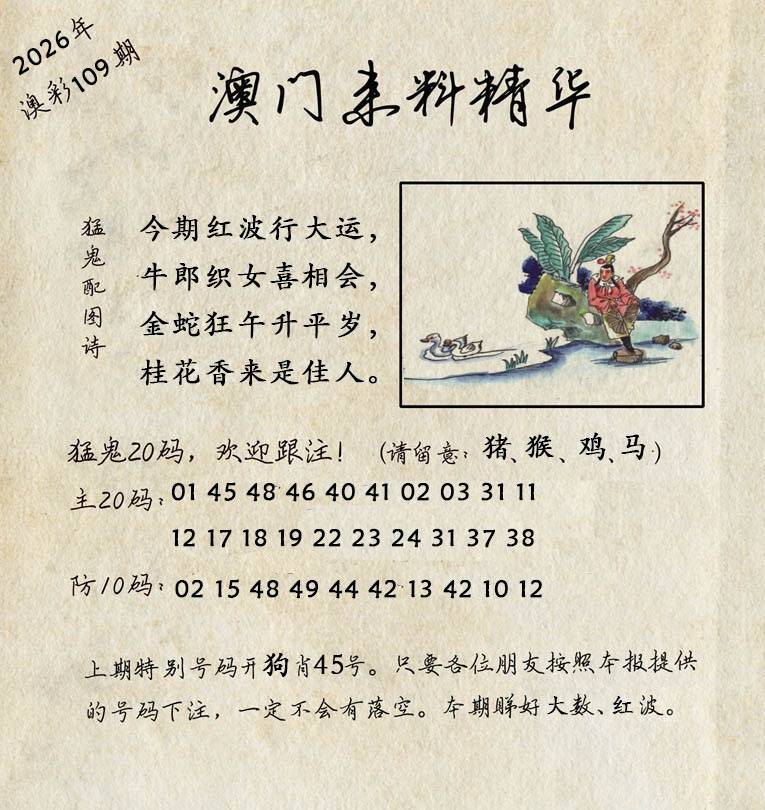 2026年
澳彩109期
澳门来料精华
猛鬼配图诗
今期红波行大运，
牛郎织女喜相会，
金蛇狂午升平岁，
桂花香来是佳人。
猛鬼20码，欢迎跟注！（请留意：猪、猴、鸡、马）
主20码：01 45 48 46 40 41 02 03 31 11
12 17 18 19 22 23 24 31 37 38
防10码：02 15 48 49 44 42 13 42 10 12
上期特别号码开狗肖45号。只要各位朋友按照本报提供
的号码下注，一定不会有落空。本期睇好大数、红波。